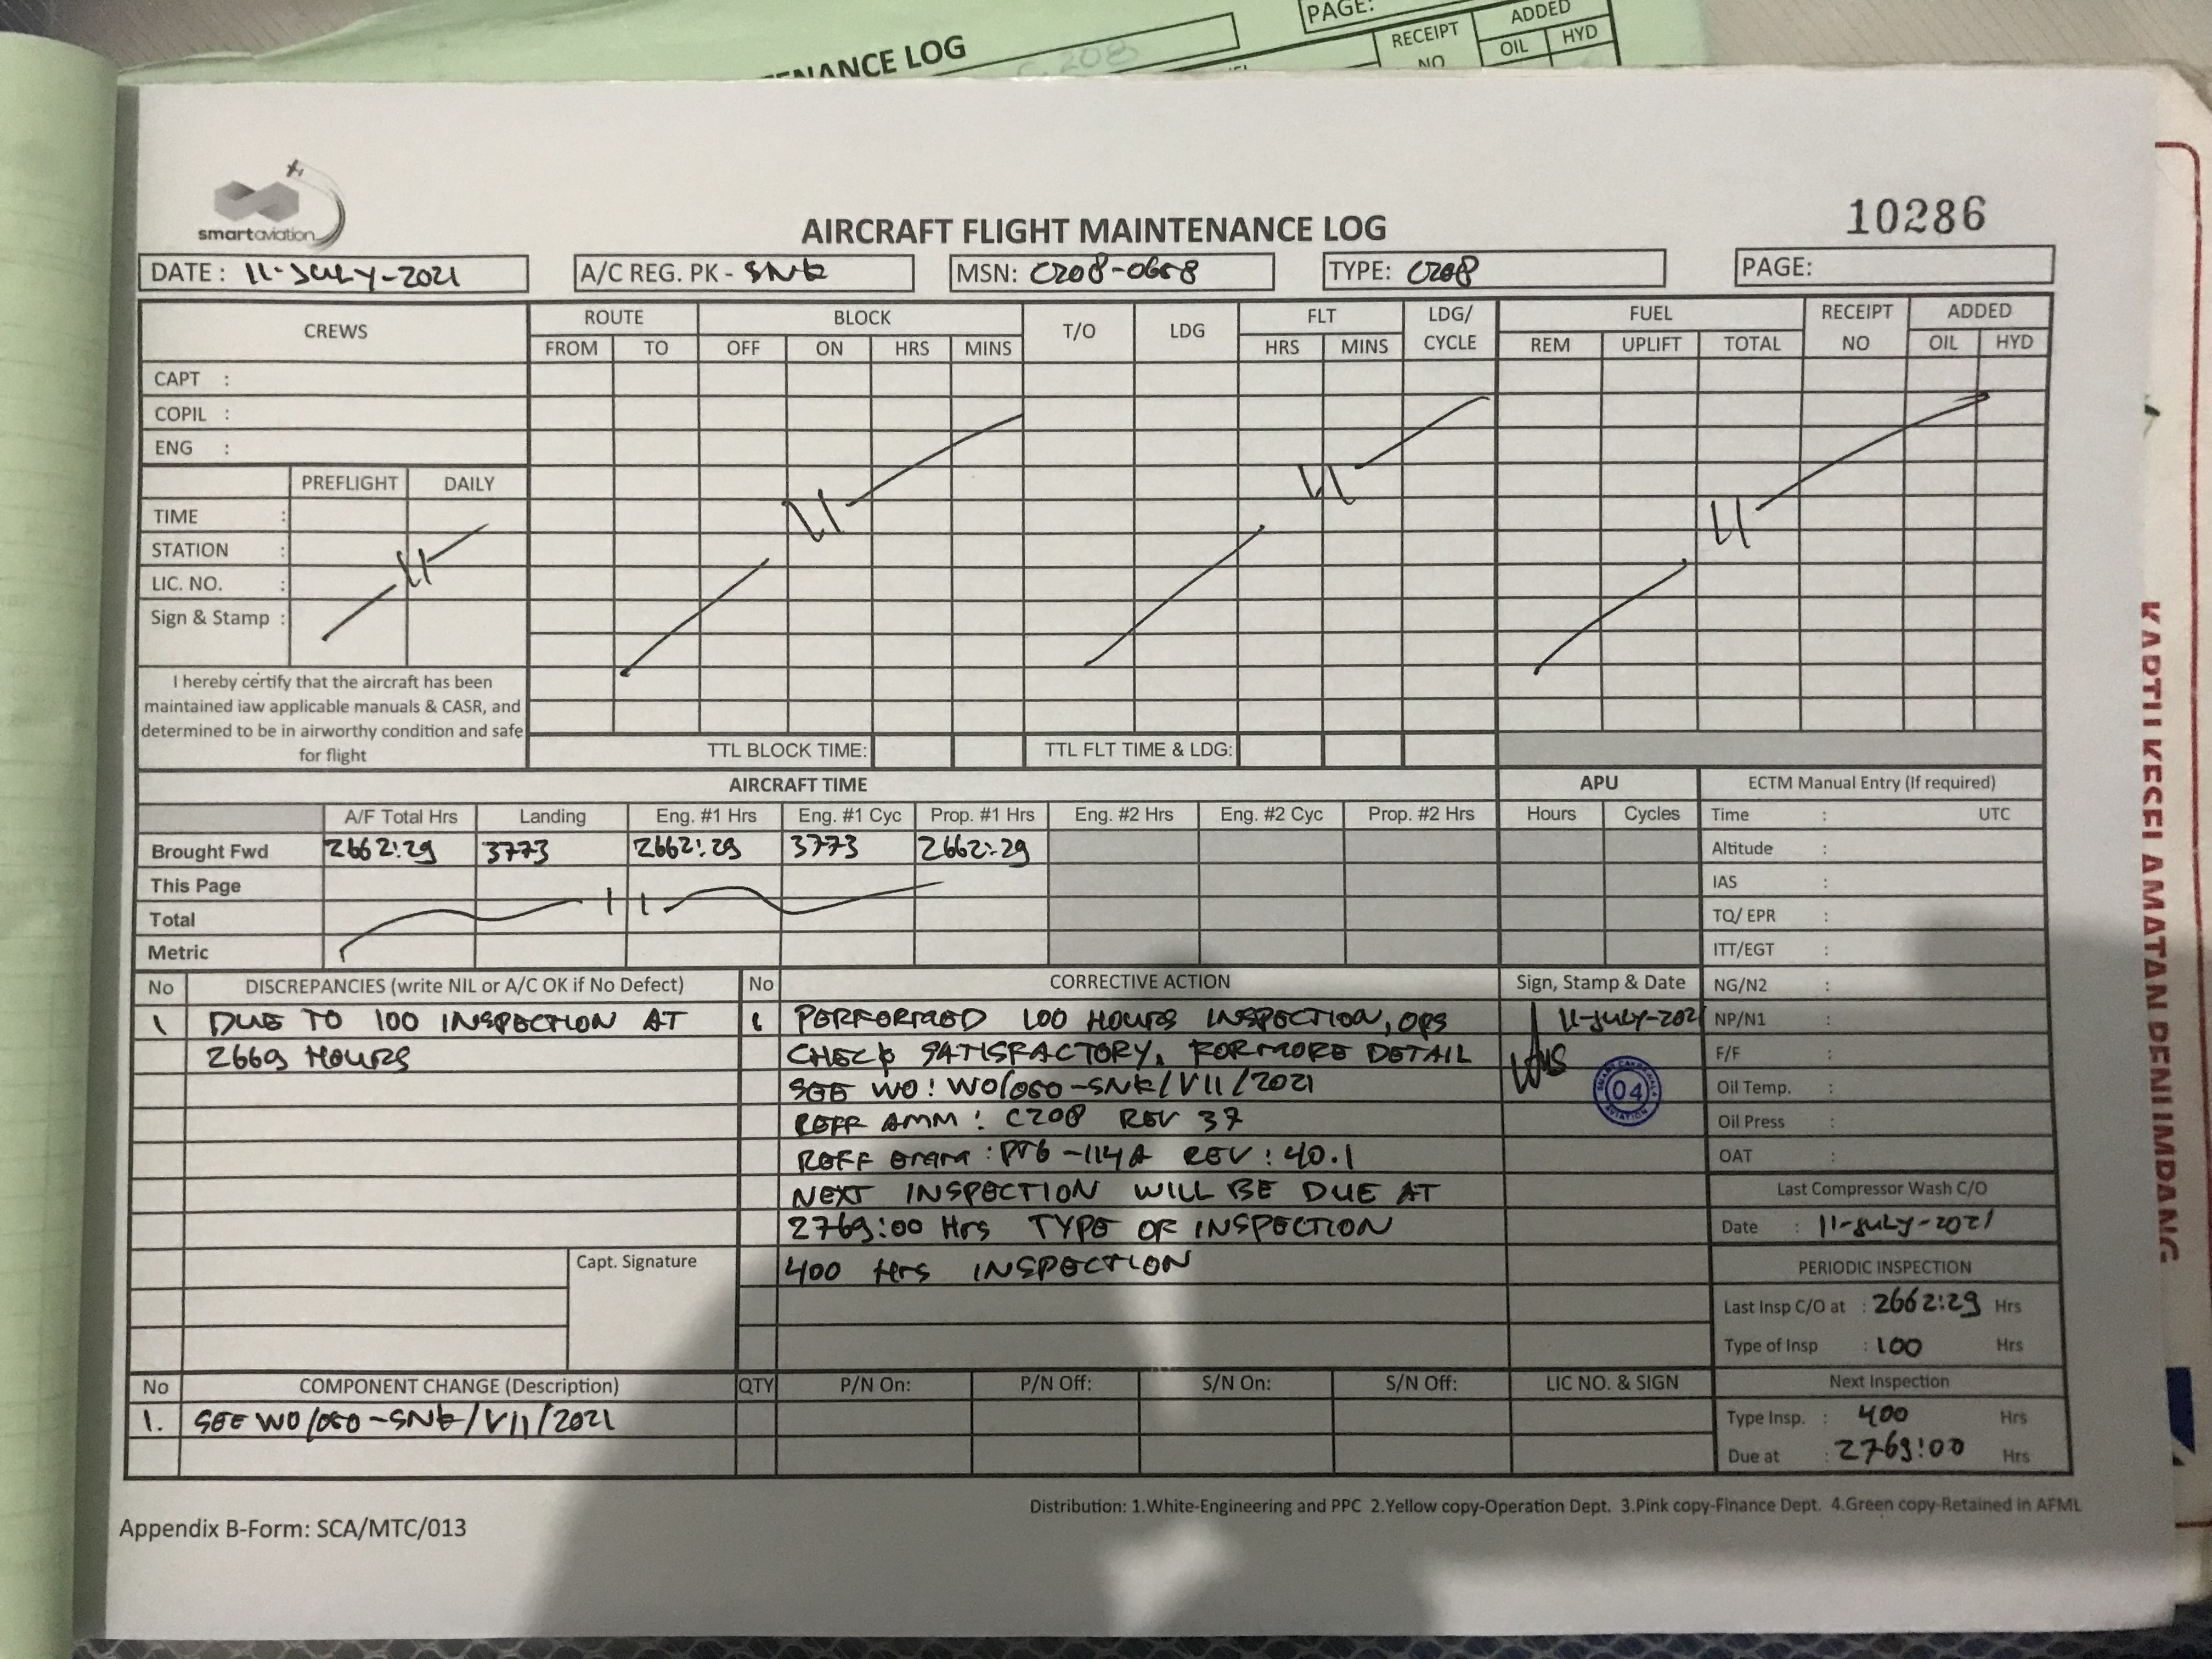 PAGE:
ADDED
RECEIPT
NO
OIL HYD
ENANCE LOG
C 208
smartaviation
10286
AIRCRAFT FLIGHT MAINTENANCE LOG
DATE : 11-JULY-2021 A/C REG. PK - SNK MSN: C208-0658 TYPE: C208 PAGE:
CREWS ROUTE BLOCK T/O LDG FLT LDG/ CYCLE FUEL RECEIPT NO ADDED
FROM TO OFF ON HRS MINS HRS MINS REM UPLIFT TOTAL OIL HYD
CAPT :
COPIL :
ENG :
PREFLIGHT DAILY
TIME :
STATION :
LIC. NO. :
Sign & Stamp :
I hereby certify that the aircraft has been
maintained iaw applicable manuals & CASR, and
determined to be in airworthy condition and safe
for flight
TTL BLOCK TIME: TTL FLT TIME & LDG:
AIRCRAFT TIME APU ECTM Manual Entry (If required)
A/F Total Hrs Landing Eng. #1 Hrs Eng. #1 Cyc Prop. #1 Hrs Eng. #2 Hrs Eng. #2 Cyc Prop. #2 Hrs Hours Cycles Time : UTC
Brought Fwd 2662:29 3773 2662:29 3773 2662:29 Altitude :
This Page IAS :
Total TQ/ EPR :
Metric ITT/EGT :
No DISCREPANCIES (write NIL or A/C OK if No Defect) No CORRECTIVE ACTION Sign, Stamp & Date NG/N2 :
1 DUE TO 100 INSPECTION AT 1 PERFORMED 100 HOURS INSPECTION, OPS 11-JULY-2021 NP/N1 :
2669 HOURS CHECK SATISFACTORY, FOR MORE DETAIL F/F :
SEE WO: WO/050-SNK/VII/2021 04 Oil Temp. :
REFF AMM : C208 REV 37 Oil Press :
REFF EMM : PT6-114A REV : 40.1 OAT :
NEXT INSPECTION WILL BE DUE AT Last Compressor Wash C/O
2769:00 Hrs TYPE OF INSPECTION Date : 11-JULY-2021
Capt. Signature 400 Hrs INSPECTION PERIODIC INSPECTION
Last Insp C/O at : 2662:29 Hrs
Type of Insp : 100 Hrs
No COMPONENT CHANGE (Description) QTY P/N On: P/N Off: S/N On: S/N Off: LIC NO. & SIGN Next Inspection
1. SEE WO/050-SNK/VII/2021 Type Insp. : 400 Hrs
Due at : 2769:00 Hrs
Distribution: 1.White-Engineering and PPC 2.Yellow copy-Operation Dept. 3.Pink copy-Finance Dept. 4.Green copy-Retained in AFML
Appendix B-Form: SCA/MTC/013